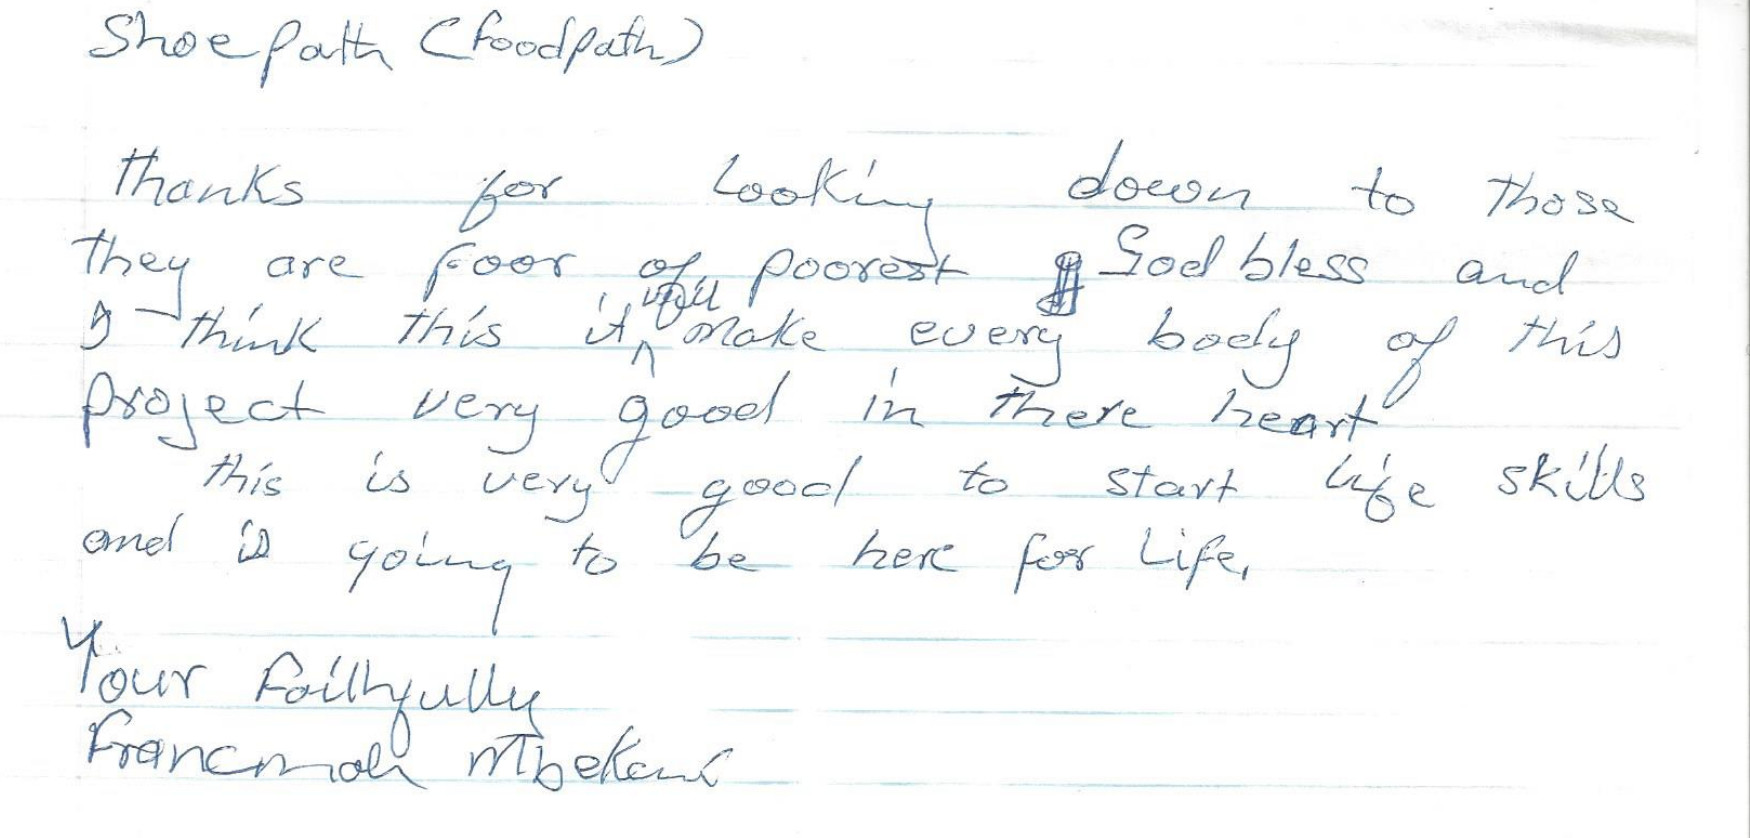 Shoepath (foodpath)
Thanks for looking down to those
they are poor of poorest God bless and
I think this it will make every body of this
project very good in there heart
this is very good to start life skills
and is going to be here for life.
Your faithfully